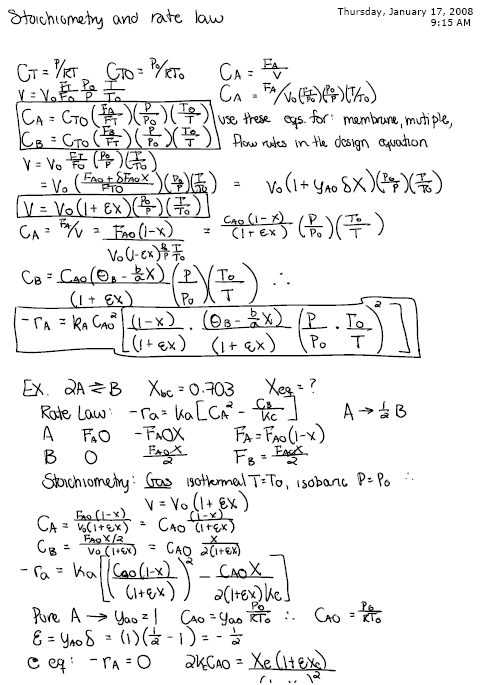 Stoichiometry and rate law
Thursday, January 17, 2008
9:15 AM
C_T = P/RT   C_TO = P_O/RT_O   C_A = F_A/V
V = V_O F_T/F_O P_O/P T/T_O   C_A = F_A/V_O(F_T/F_O)(P_O/P)(T/T_O)
C_A = C_TO (F_A/F_T)(P/P_O)(T_O/T)   use these eqs. for: membrane, mutiple,
C_B = C_TO (F_B/F_T)(P/P_O)(T_O/T)   flow rates in the design equation
V = V_O F_T/F_O (P_O/P)(T/T_O)
= V_O (F_AO + δF_AO X / F_TO)(P_O/P)(T/T_O) = V_O (1 + y_AO δX)(P_O/P)(T/T_O)
V = V_O (1 + εX)(P_O/P)(T/T_O)
C_A = F_A/V = F_AO(1-X) / V_O(1-εX) P_O/P T/T_O = C_AO(1-X)/(1+εX) (P/P_O)(T_O/T)
C_B = C_AO(Θ_B - b/a X)/(1+εX) (P/P_O)(T_O/T) ∴
-r_A = k_A C_AO² [(1-X)/(1+εX) · (Θ_B - b/a X)/(1+εX) (P/P_O · T_O/T)²]
Ex. 2A ⇌ B   X_bc = 0.703   X_eq = ?
Rate Law: -r_a = k_a [C_A² - C_B/K_C]   A → ½ B
A   F_AO   -F_AOX   F_A = F_AO(1-X)
B   O   F_AOX/2   F_B = F_AOX/2
Stoichiometry: Gas isothermal T=T_O, isobaric P=P_O ∴
V = V_O (1+εX)
C_A = F_AO(1-X)/V_O(1+εX) = C_AO (1-X)/(1+εX)
C_B = F_AO X/2 / V_O(1+εX) = C_AO X/2(1+εX)
-r_a = k_a [(C_AO(1-X)/(1+εX))² - C_AO X/2(1+εX)K_C]
Pure A → y_AO = 1   C_AO = y_AO P_O/RT_O ∴ C_AO = P_O/RT_O
ε = y_AO δ = (1)(½ - 1) = -½
@ eq: -r_A = 0   2K_C C_AO = X_e(1+εX_e)